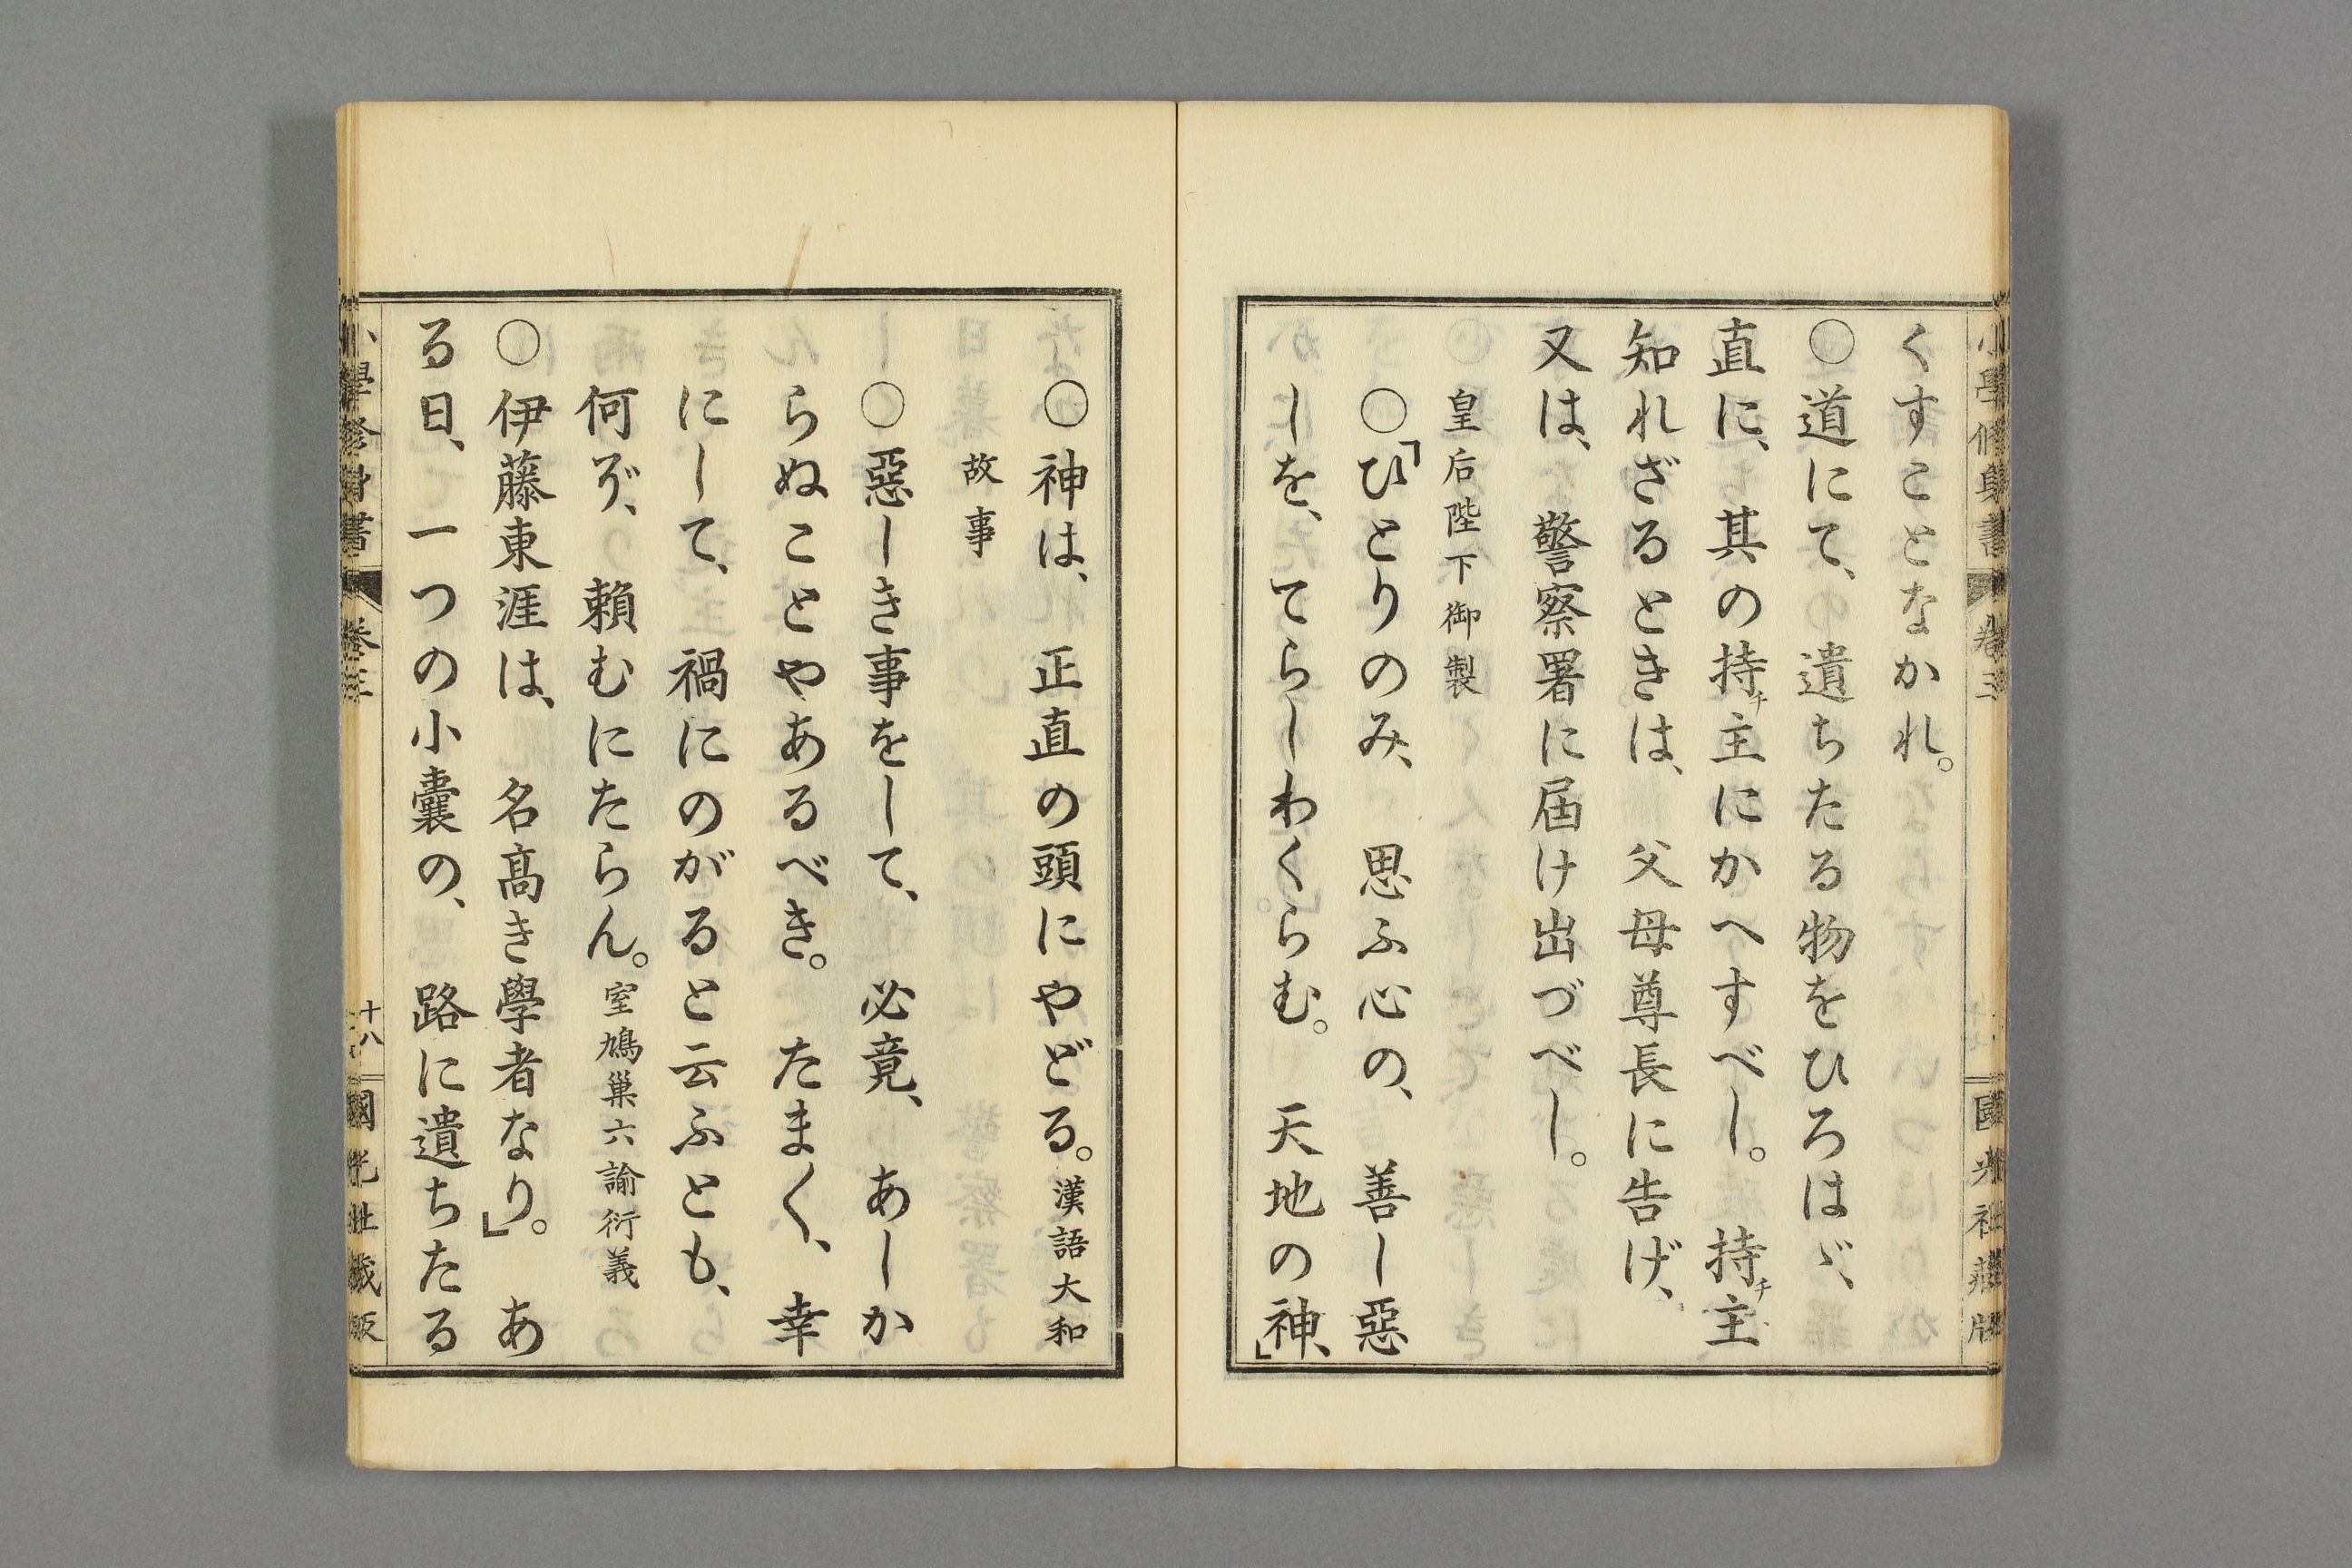 小學修身書 卷三 國光社藏版
くすことなかれ。
○道にて、遺ちたる物をひろはゞ、
直に、其の持チ主にかへすべし。持チ主
知れざるときは、父母尊長に告げ、
又は、警察署に屆け出づべし。
皇后陛下御製
○「ひとりのみ、思ふ心の、善し惡
しを、てらしわくらむ。天地の神、」
○神は、正直の頭にやどる。漢語大和
故事
○惡しき事をして、必竟、あしか
らぬことやあるべき。たま〱、幸
にして、禍にのがると云ふとも、
何ぞ、賴むにたらん。室鳩巢六諭衍義
○伊藤東涯は、名髙き學者なり。」あ
る日、一つの小囊の、路に遺ちたる
小學修身書 卷三 十八 國光社藏版